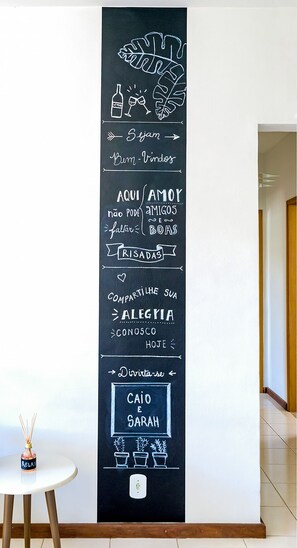 Sejam
Bem-Vindos
AQUI
não PODE
faltar
AMOR
aMIGOS
E
BOAS
RISADAS
COMPARTILHE SUA
ALEGRIA
CONOSCO
HOJE
Divirta-se
CAIO
E
SARAH
RELAX